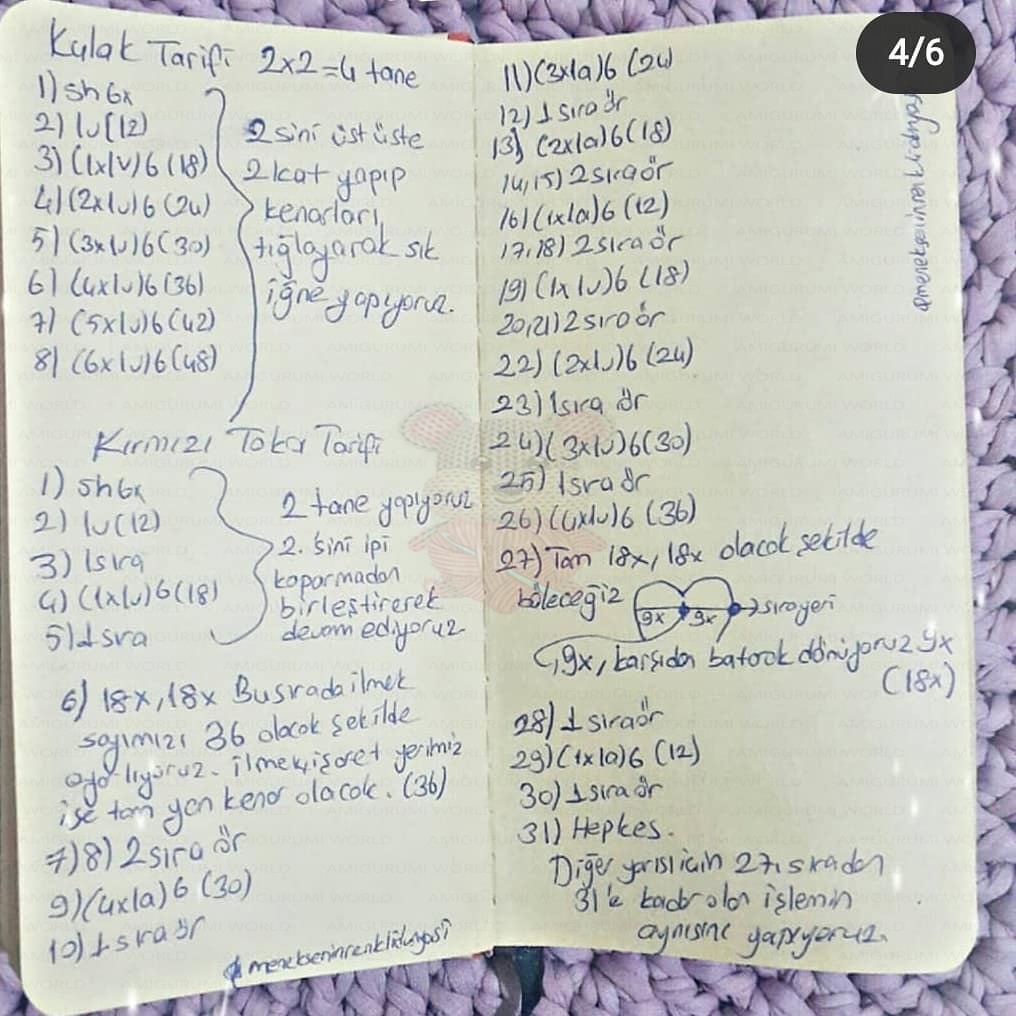 4/6
Kulak Tarifi 2x2=4 tane
1) Sh6x
2) IV(12)
3) (1xIV)6 (18)
4) (2xIV)6 (24)
5) (3xIV)6 (30)
6) (4xIV)6 (36)
7) (5xIV)6 (42)
8) (6xIV)6 (48)
2 sini üst üste
2 kat yapıp
kenarları
tığlayarak sık
iğne yapıyoruz.
Kırmızı Toka Tarifi
1) Sh6x
2) IV(12)
3) 1 sıra
4) (1xIV)6 (18)
5) 1 sıra
2 tane yapıyoruz
2. sini ipi
koparmadan
birleştirerek
devam ediyoruz
6) 18x, 18x Bu sırada ilmek
sayımızı 36 olacak şekilde
ayarlıyoruz. ilmek işaret yerimiz
ise tam yan kenar olacak. (36)
7) 8) 2 sıra ör
9) (4x1a)6 (30)
10) 1 sıra ör
@menekseninrenklidunyasi
11) (3x1a)6 (24)
12) 1 sıra ör
13) (2x1a)6 (18)
14,15) 2 sıra ör
16) (1x1a)6 (12)
17,18) 2 sıra ör
19) (1xIV)6 (18)
20,21) 2 sıra ör
22) (2xIV)6 (24)
23) 1 sıra ör
24) (3xIV)6 (30)
25) 1 sıra ör
26) (4xIV)6 (36)
27) Tam 18x, 18x olacak şekilde
böleceğiz
9x 9x → sıra yeri
9x, karşıdan batarak dönüyoruz 9x
(18x)
28) 1 sıra ör
29) (1x1a)6 (12)
30) 1 sıra ör
31) Hep kes.
Diğer yarısı için 27. sıradan
31'e kadar olan işlemin
aynısını yapıyoruz.
AMIGURUMI WORLD